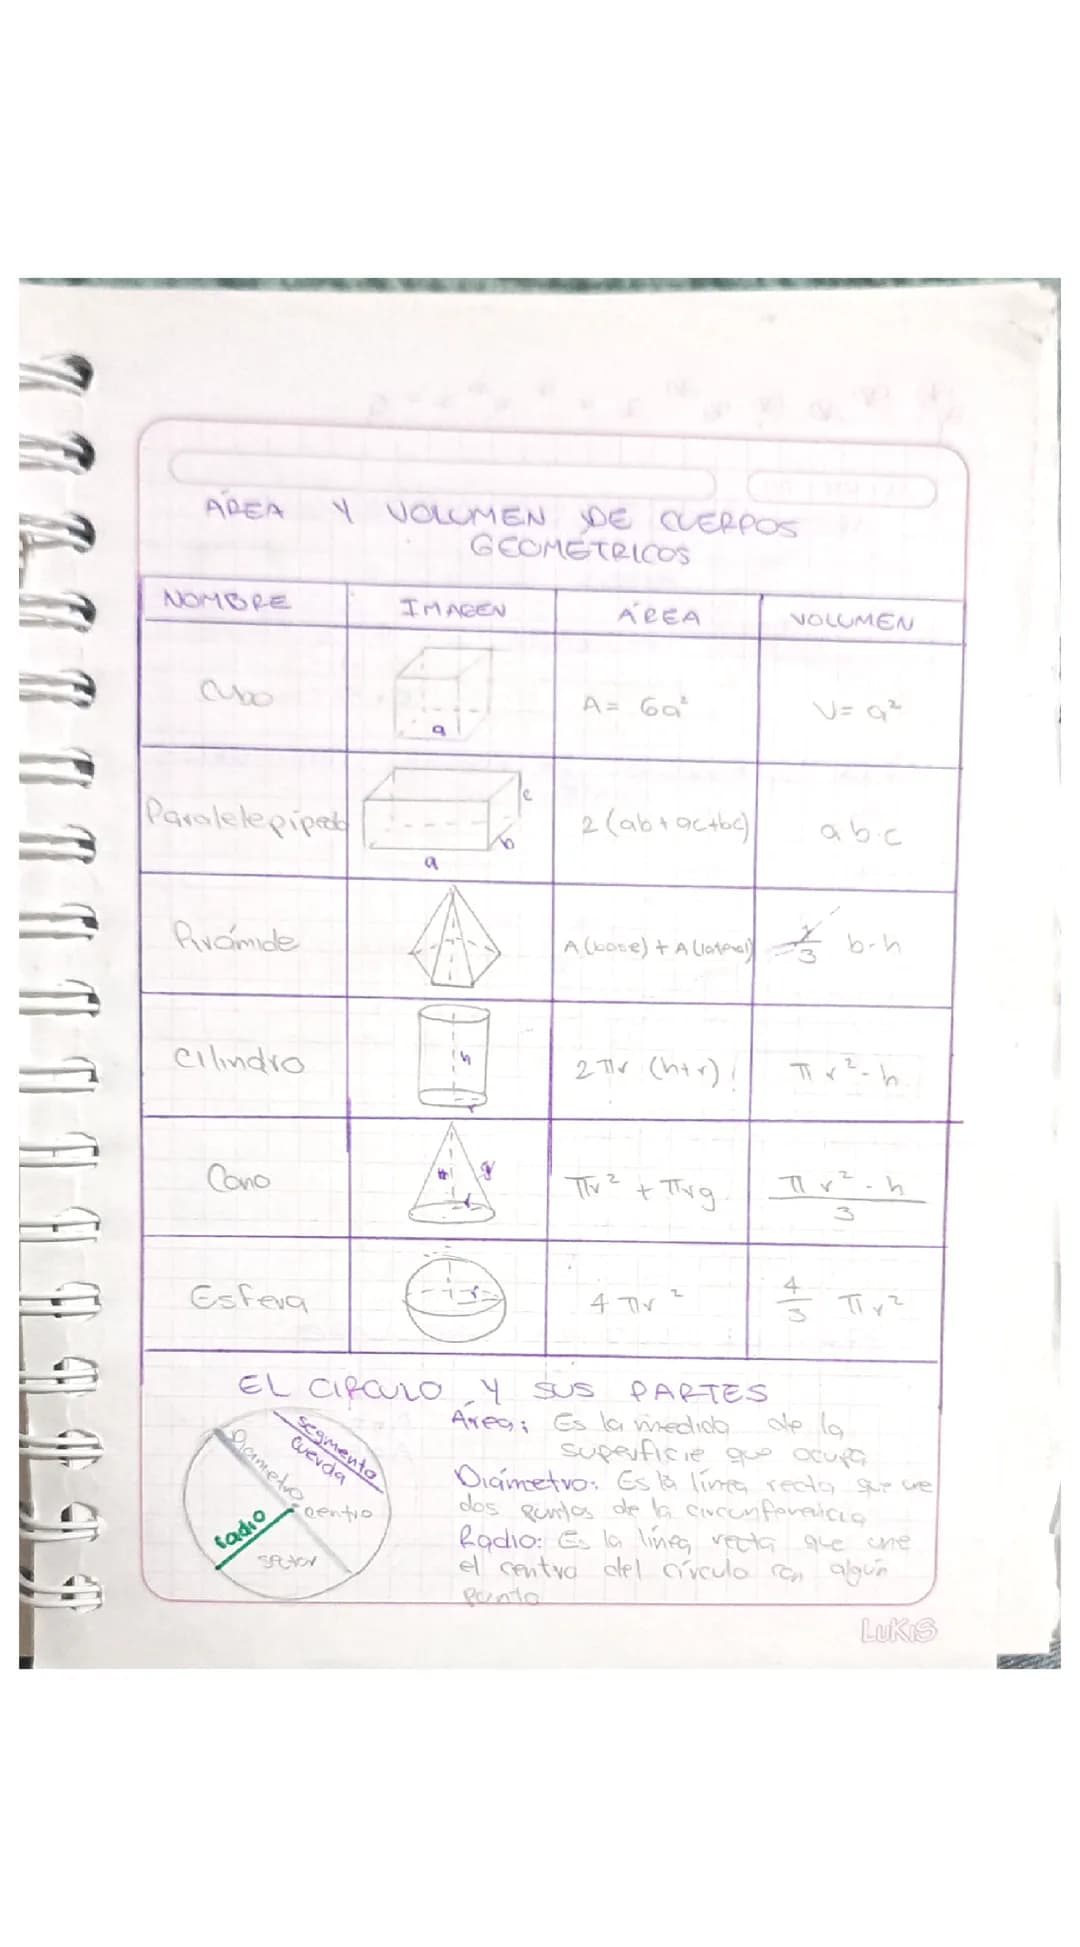 ÁREA Y VOLUMEN DE CUERPOS
GEOMÉTRICOS
NOMBRE IMAGEN ÁREA VOLUMEN
Cubo a A= 6a² V= a²
Paralelepípedo a b c 2 (ab+ac+bc) a b·c
Pirámide A (base) + A (lateral) 1/3 b-h
Cilindro h r 2πr (h+r) πr²-h
Cono g r πr² + πrg πr²-h/3
Esfera r 4πr² 4/3 πr²
EL CIRCULO Y SUS PARTES
segmento
cuerda
Diametro
centro
radio
sector
Área: Es la medida de la
superficie que ocupa
Diámetro: Es la línea recta que une
dos puntos de la circunferencia
Radio: Es la línea recta que une
el centro del círculo con algún
punto
LUKIS